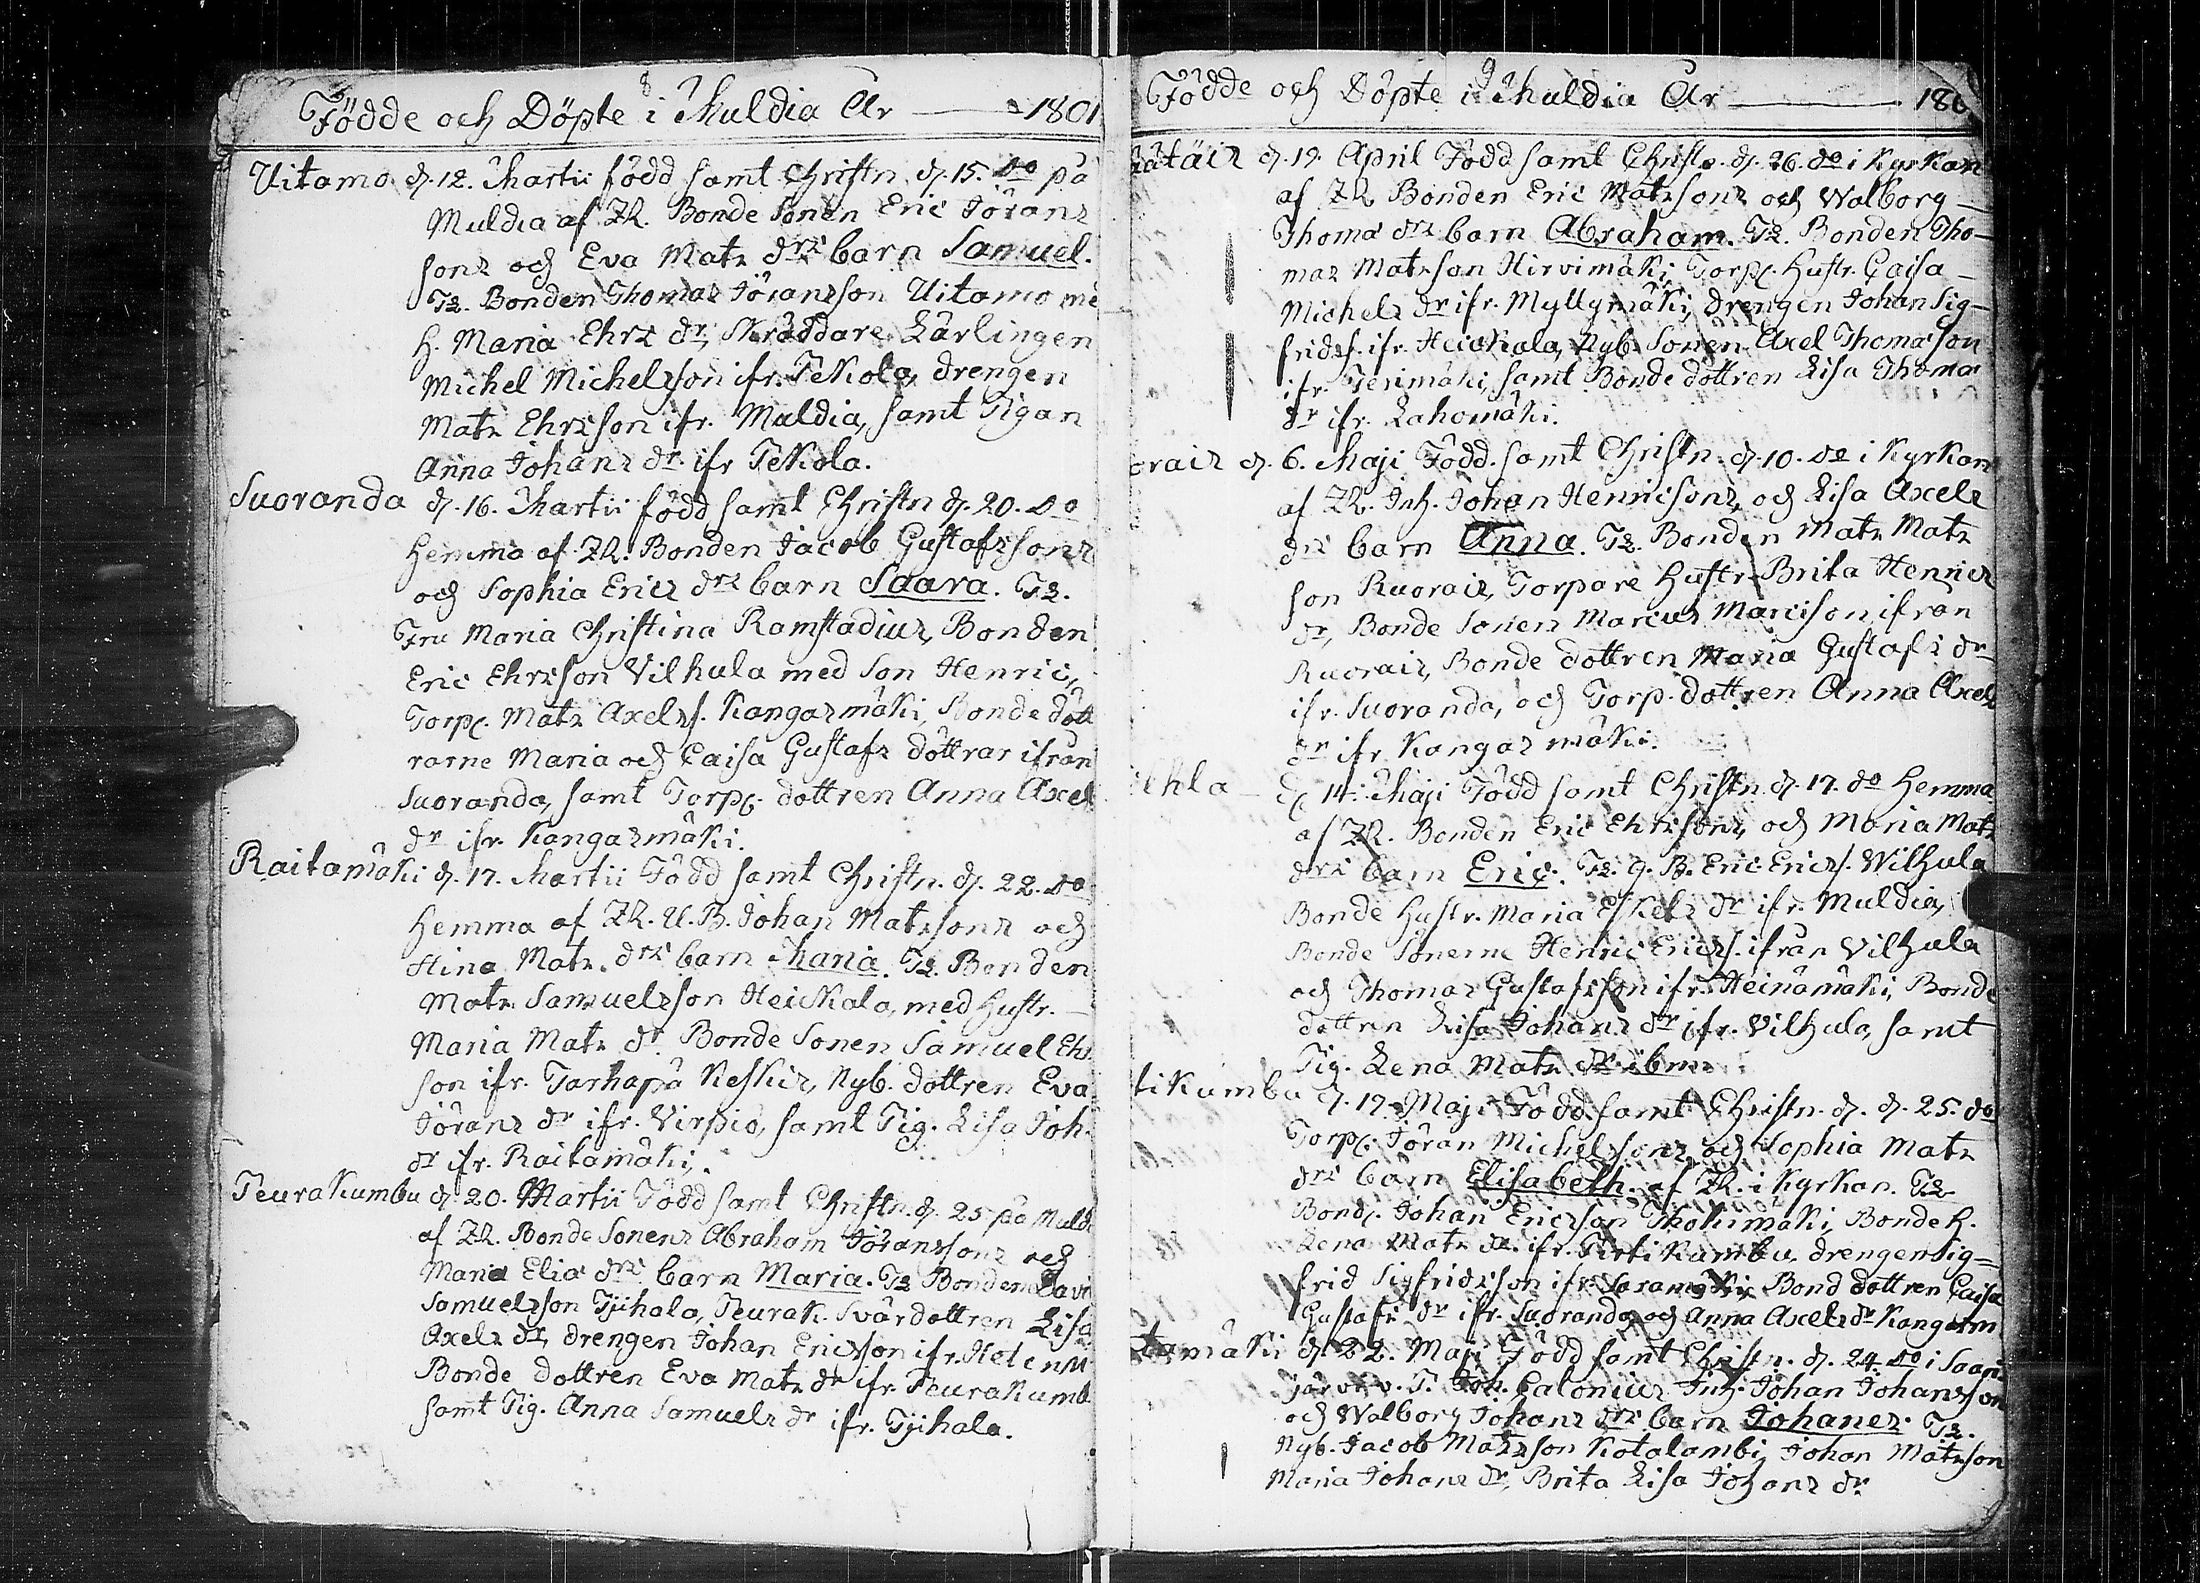 8
Födde och Döpte i Muldia År — 1801
Uitamo d. 12. Martii född samt Christn. d. 15. do på
Muldia af ZR. Bonde Sonen Eric Jörans
sons och Eva Mats drs barn Samuel.
Ts. Bonden Thomas Jöransson Uitamo me
H. Maria Ehrs dr, Skräddare Lärlingen
Michel Michelsson ifr. Tekola, drengen
Mats Ehrsson ifr. Muldia, samt Pigan
Anna Johans dr. ifr Tekola.
Suoranda d. 16. Martii född samt Christn d. 20. do
hemma af ZR. Bonden Jacob Gustafssons
och Sophia Erics drs barn Saara. Ts.
Fru Maria Christina Ramstadius, Bonden
Eric Ehrsson Vilhula med Son Henric,
Torp. Mats Axelss. Kangasmäki, Bonde dött
rarne Maria och Caisa Gustafs döttrar ifrån
Suoranda, samt Torp. dottren Anna Axel
dr ifr. Kangasmäki.
Raitamäki d. 17. Martii Född samt Christn. d. 22. do
hemma af ZR. U.B. Johan Matssons och
Stina Mats. drs barn Maria. Ts. Bonden
Mats Samuelsson Heickala, med Hustr. —
Maria Mats dr. Bonde Sonen Samuel Ehr
son ifr. Tarhapä Keskis, Nyb. dottren Eva
Jörans dr ifr. Virpio, samt Pig. Lisa Joh.
dr ifr. Raitamäki.
Teurakumbu d. 20. Martii Född samt Christn. d. 25 på Muldi
af ZR. Bonde Sonens Abraham Jöranssons och
Maria Elia drs barn Maria. Ts Bonden Davi
Samuelsson Tjihala, Teurak. Svärdottren Lisa
Axels dr, drengen Johan Ericsson ifr.
Bonde dottren Eva Mats dr ifr. Teurakumb
samt Pig. Anna Samuels dr ifr. Tjihala.
9
Födde och Döpte i Muldia År — 180
d. 19. April Född samt Christn. d. 26. do i Kyrkan
af ZR Bonden Eric Matssons och Walborg —
Thoma drs barn Abraham. Ts. Bonden Tho-
mas Matsson Hirvimäki, Torp. Hustr. Caisa —
Michels dr ifr. Myllymäki, drengen Johan Sig-
fridss. ifr. Heickala, Nyb. Sonen Axel Thomasson
ifr. samt Bonde dottren Lisa Thoma
dr ifr. Lahomäki.
orais d. 6. Maji Född samt Christn. d. 10. do i Kyrkan
af ZR. Inh. Johan Henricsons, och Lisa Axels
drs barn Anna. Ts. Bonden Mats Mats
son Ruorais, Torpare Hustr. Brita Henrics
dr, Bonde Sonen Marcus Marcison ifrån
Ruorais, Bonde dottren Maria Gustafs dr
ifr. Suoranda, och Torp. dottren Anna Axels
dr ifr. Kangasmäki.
ehla — d. 14. Maji Född samt Christn. d. 17. do hemma
af ZR. Bonden Eric Ehrssons, och Maria Mats
drs barn Eric. Ts. G. B. Eric Ericss. Wilhula
Bonde Hustr. Maria Eskels dr ifr. Muldia,
Bonde Sonerne Henric Ericss. ifrån Vilhula
och Thomas Gustafsson ifr. Heinämäki, Bonde
dottren Lisa Johans dr ifr. Vilhula, samt
Pig. Lena Mats dr ibm.
tikumbu d. 17. Maji Född samt Christn. d. d. 25. do
Torp. Jöran Michelssons och Sophia Mats
drs barn Elisabeth. af ZR. i Kyrkan. Ts
Bond. Johan Ericsson Bonde H.
Lena Mats dr. ifr. Pertikumbu drengen Sig-
frid Sigfridsson ifr. Saramäki, Bond dottren Caisa
Gustafs dr ifr. Suoranda och Anna Axels dr Kangasm
tamäki d. 22. Maji Född samt Christn. d. 24. do i Saari
järvi v. P. Joh. Calonius Inh. Johan Johansson
och Walborg Johans drs barn Johanes. Ts.
Nyb. Jacob Matsson Kotalambi, Johan Matsson
Maria Johans dr, Brita Lisa Johans dr